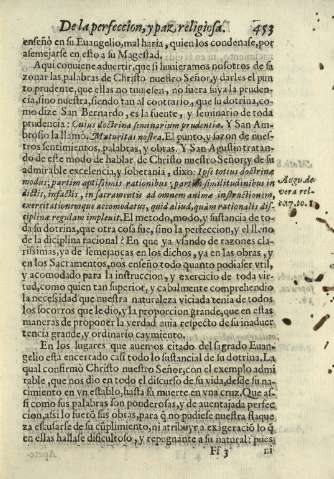 De la perfeccion, y paz, religiosa. 453
enseñò en su Euangelio, mal haria, quien los condenase, por
asemejarse en esto a su Magestad.
Aqui conviene aduertir, que si huuieramos nosotros de sa
zonar las palabras de Christo nuestro Señor, y darles el pun
to prudente, que ellas no tuuiesen, no fuera suya la pruden
cia, sino nuestra, siendo tan al contrario, que su dotrina, co
mo dize San Bernardo, es la fuente, y seminario de toda
prudencia: Cuius doctrina seminarium prudentiæ. Y San Am-
brosio la llamò, Maturitas nostra. El punto, y sazon de nues
tros sentimientos, palabras, y obras. Y San Agustin tratan-
do de este modo de hablar de Christo nuestro Señor, y de su
admirable excelencia, y soberania, dixo: Ipse totius doctrinæ
modus; partim aptissimis rationibus; partim similitudinibus in
dictis, in factis, in sacramentis ad omnem animæ instructionem,
exercitationemque accomodatus, quid aliud, quàm rationalis dis-
ciplinæ regulam impleuit. El metodo, modo, y sustancia de to
da su dotrina, que otra cosa fue, sino la perfeccion, y el lleno
de la diciplina racional? En que ya vsando de razones cla-
rissimas, ya de semejanças en los dichos, ya en las obras, y
en los Sacramentos, nos enseño todo quanto podia ser vtil,
y acomodado para la instruccion, y exercicio de toda vir-
tud, como quien tan superior, y cabalmente comprehendio
la necesidad que nuestra naturaleza viciada tenia de todos
los socorros que le dio, y la proporcion grande, que en estas
maneras de proponer la verdad auia respecto de su inaduer
tencia grande, y ordinario caymiento.
En los lugares que auemos citado del sagrado Euan-
gelio està encerrado casi todo lo sustancial de su dotrina. La
qual confirmò Christo nuestro Señor, con el exemplo admi
rable, que nos dio en todo el discurso de su vida, desde su na-
cimiento en vn establo, hasta su muerte en vna cruz. Que as-
si como sus palabras son ponderosas, y de auentajada perfec
cion, assi lo fueron sus obras, para q̃ no pudiese nuestra flaque
za escusarse de su cuplimiento, ni atribuyr a exageracio lo q̃
en ellas hallase dificultoso, y repugnante a su natural: pues
Ff 3 ni
Augu. de
vera rel.
c. 17. to. 1.